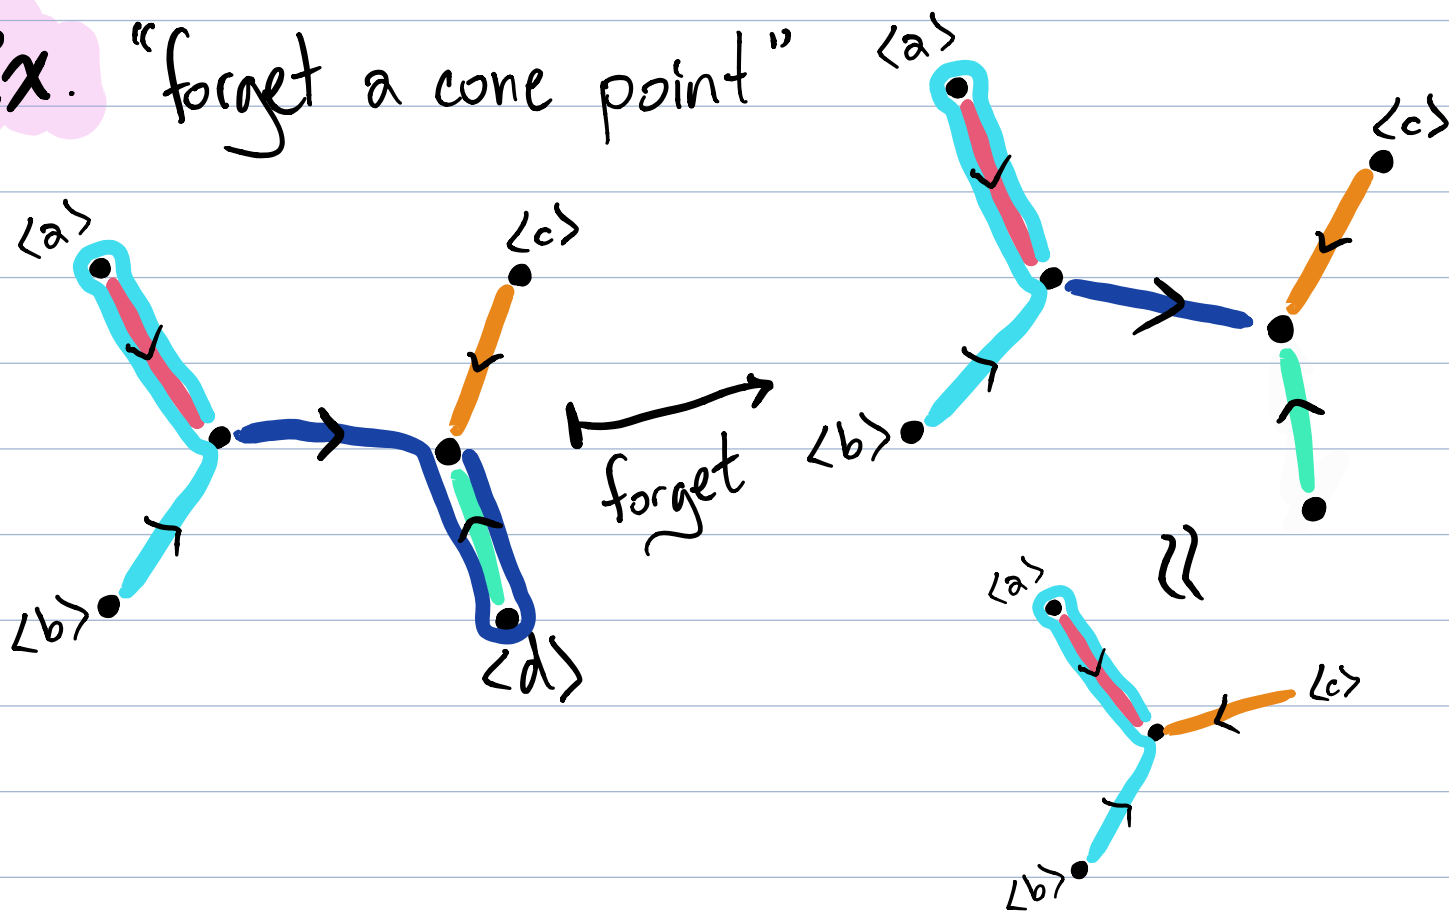 Ex. "forget a cone point"
<a>
<c>
<b>
<d>
forget
<a>
<c>
<b>
≈
<a>
<c>
<b>